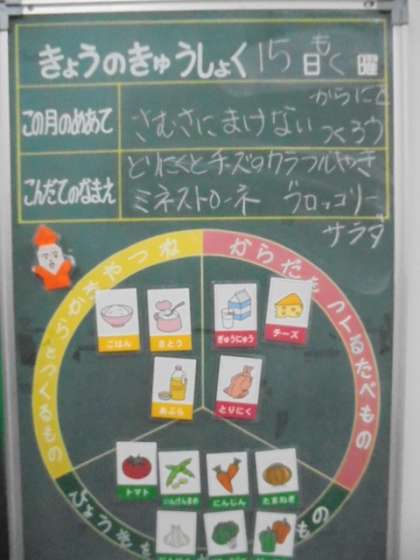 きょうのきゅうしょく 15日 もく曜
この月のめあて
さむさにまけない からだをつくろう
こんだてのなまえ
とりにくとチーズのカラフルやき
ミネストローネ ブロッコリー
サラダ
ねつやちからになるたべもの
からだをつくるたべもの
ごはん
さとう
ぎゅうにゅう
チーズ
あぶら
とりにく
トマト
いんげんまめ
にんじん
たまねぎ
びょうきを
もの